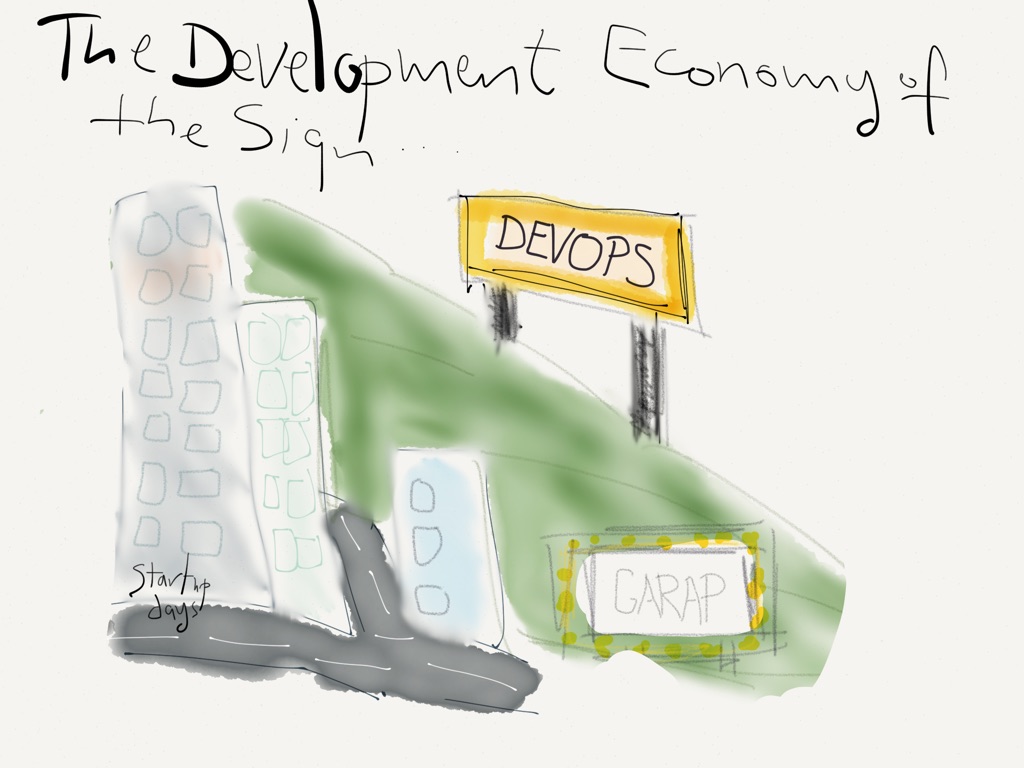 The Development Economy of
the Sign....
DEVOPS
GARAP
Startup
days